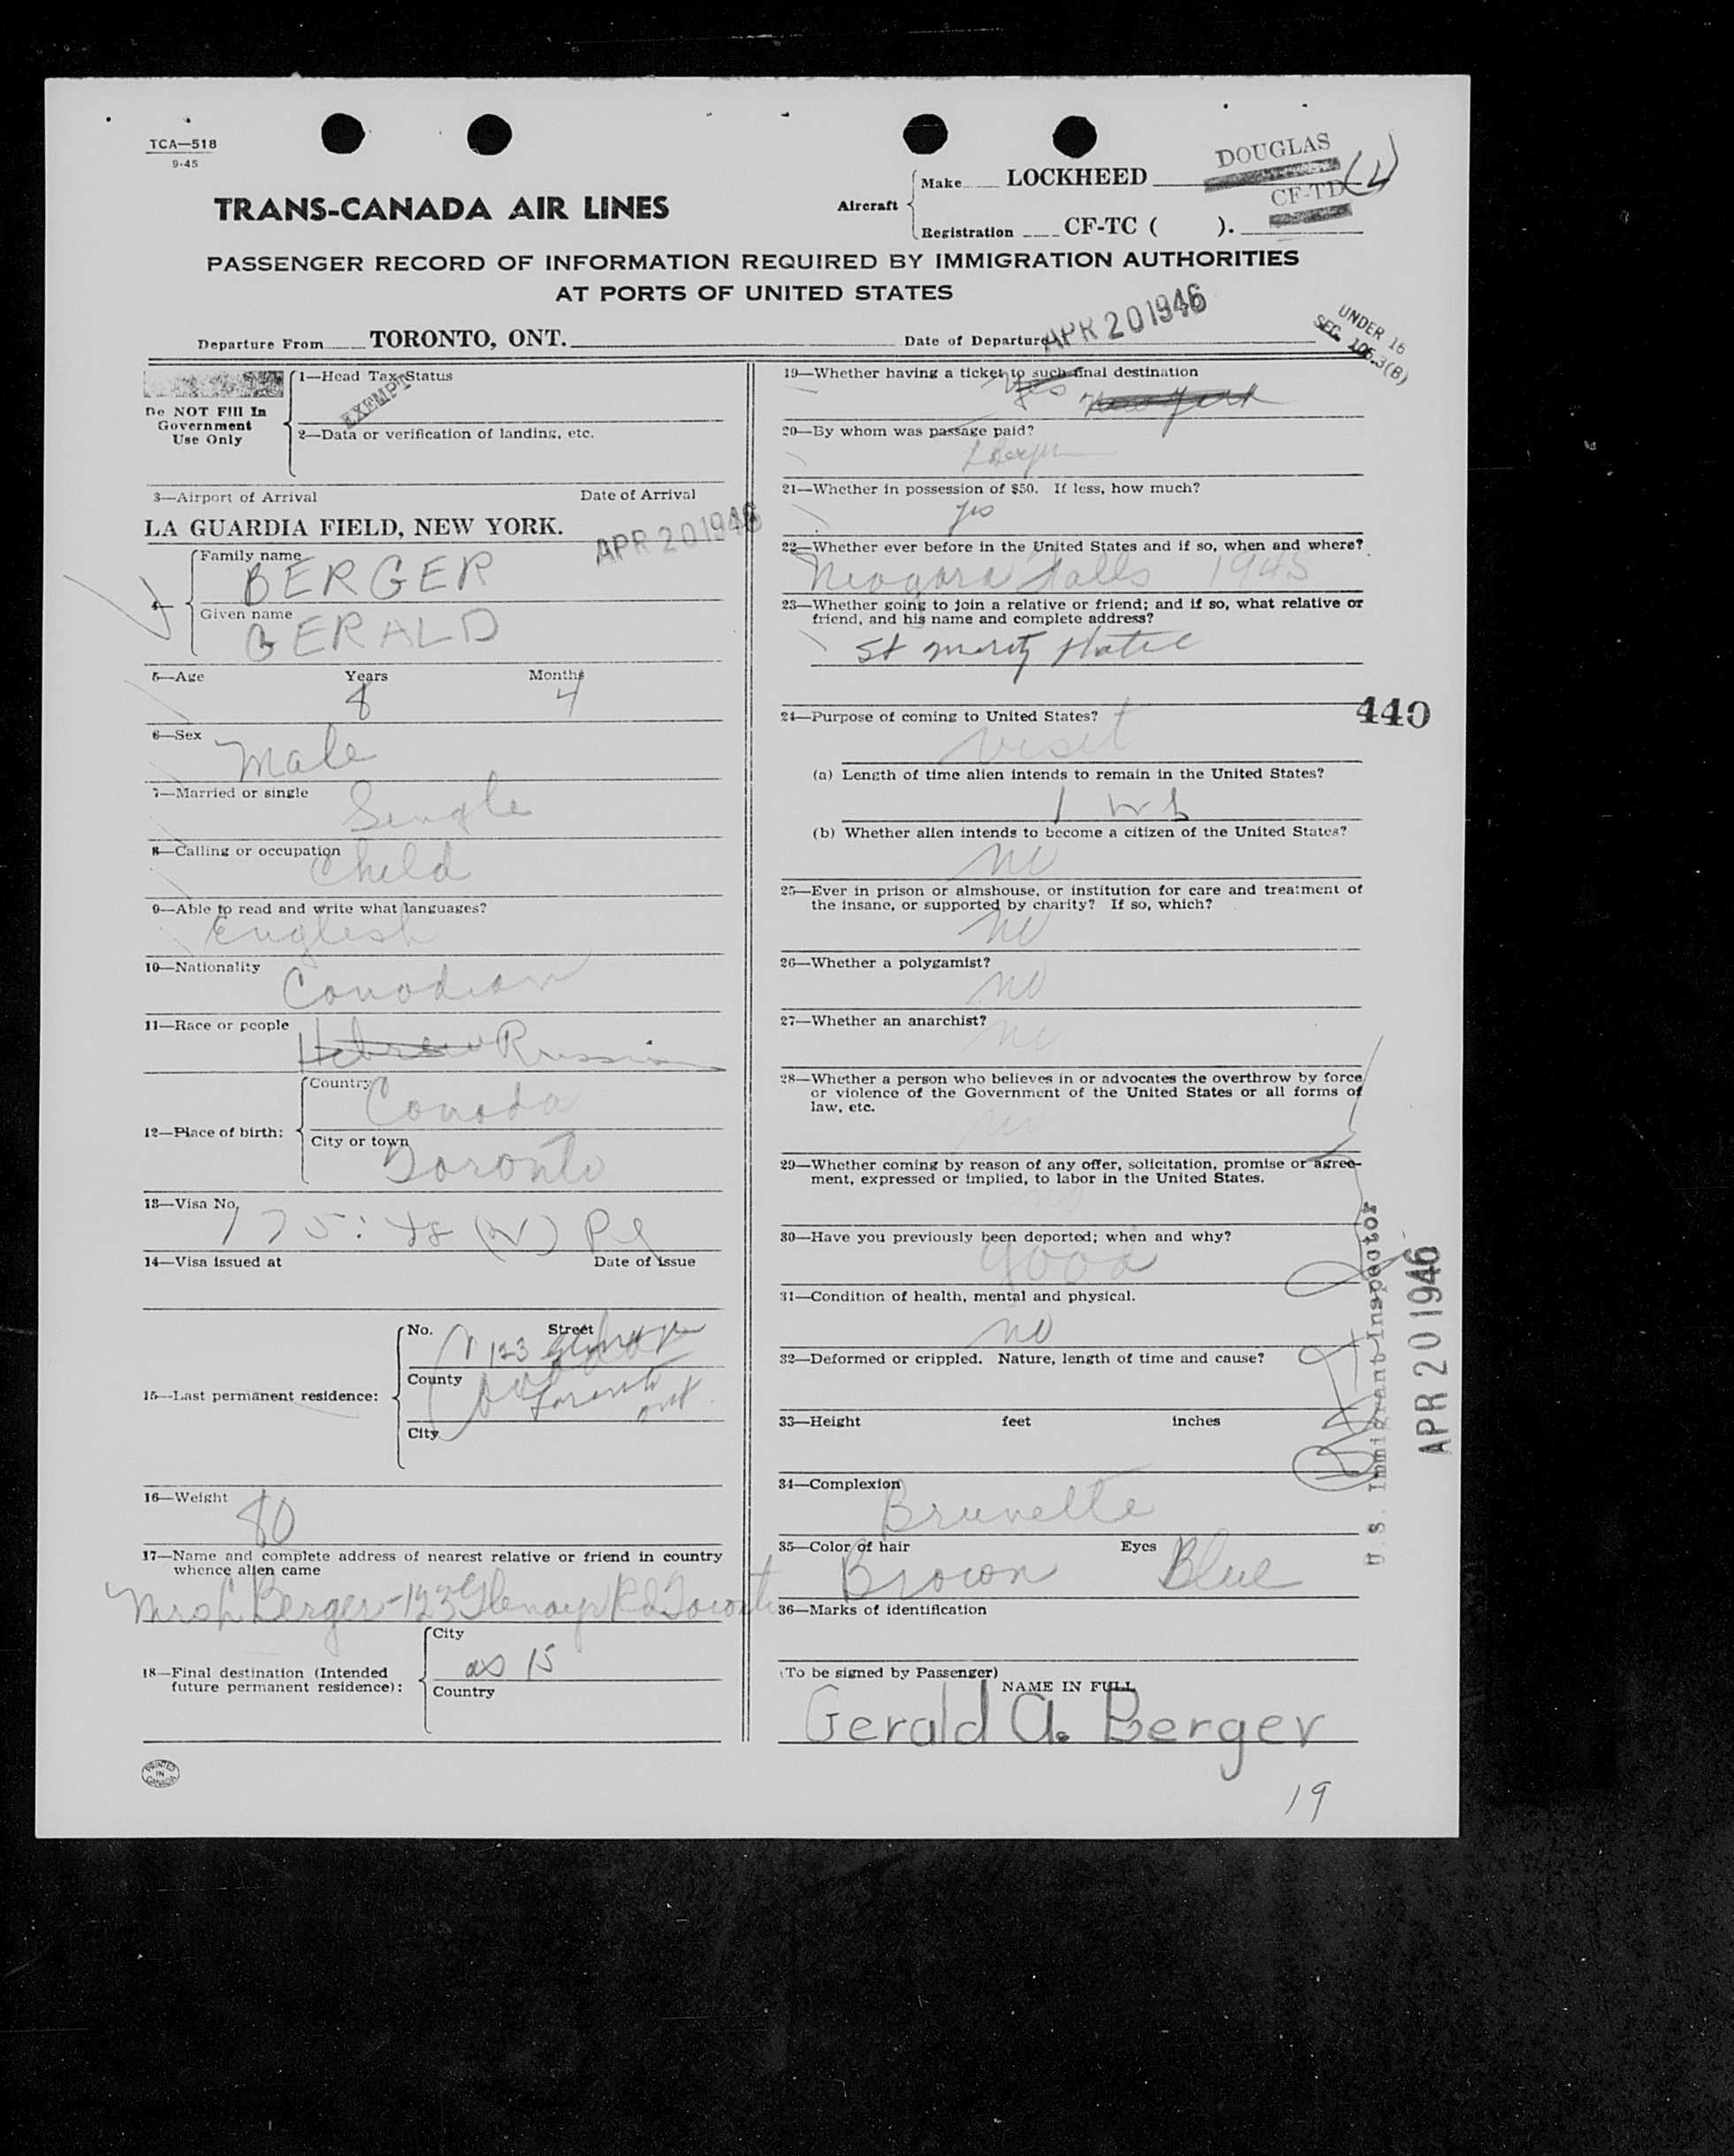 TCA—518
9-45
TRANS-CANADA AIR LINES
Aircraft
Make LOCKHEED
DOUGLAS
Registration CF-TC ( ).
CF-TD
PASSENGER RECORD OF INFORMATION REQUIRED BY IMMIGRATION AUTHORITIES
AT PORTS OF UNITED STATES
Departure From TORONTO, ONT.
Date of Departure APR 20 1946
UNDER 16
SEC. 105.3(B)
Do NOT Fill In
Government
Use Only
1—Head Tax Status
EXEMPT
2—Data or verification of landing, etc.
3—Airport of Arrival Date of Arrival
LA GUARDIA FIELD, NEW YORK. APR 20 1946
4—
Family name
BERGER
Given name
GERALD
5—Age Years Months
8 4
6—Sex
Male
7—Married or single
Single
8—Calling or occupation
Child
9—Able to read and write what languages?
English
10—Nationality
Canadian
11—Race or people
Hebrew Russian
12—Place of birth:
Country
Canada
City or town
Toronto
13—Visa No.
14—Visa issued at Date of issue
15—Last permanent residence:
No. Street
123
County
Toronto
Ont
City
16—Weight
80
17—Name and complete address of nearest relative or friend in country
whence alien came
Mrs L Berger - 123 Glenayr Rd Toronto
18—Final destination (Intended
future permanent residence):
City
as 15
Country
PRINTED
IN
CANADA
19—Whether having a ticket to such final destination
Yes New York
20—By whom was passage paid?
L Berger
21—Whether in possession of $50. If less, how much?
yes
22—Whether ever before in the United States and if so, when and where?
Niagara Falls 1945
23—Whether going to join a relative or friend; and if so, what relative or
friend, and his name and complete address?
St Moritz Hotel
440
24—Purpose of coming to United States?
Visit
(a) Length of time alien intends to remain in the United States?
1 wk
(b) Whether alien intends to become a citizen of the United States?
no
25—Ever in prison or almshouse, or institution for care and treatment of
the insane, or supported by charity? If so, which?
no
26—Whether a polygamist?
no
27—Whether an anarchist?
no
28—Whether a person who believes in or advocates the overthrow by force
or violence of the Government of the United States or all forms of
law, etc.
no
29—Whether coming by reason of any offer, solicitation, promise or agree-
ment, expressed or implied, to labor in the United States.
no
30—Have you previously been deported; when and why?
good
31—Condition of health, mental and physical.
no
32—Deformed or crippled. Nature, length of time and cause?
33—Height feet inches
34—Complexion
Brunette
35—Color of hair Eyes
Brown Blue
36—Marks of identification
(To be signed by Passenger)
NAME IN FULL
Gerald A. Berger
19
U.S. Immigrant Inspector
APR 20 1946